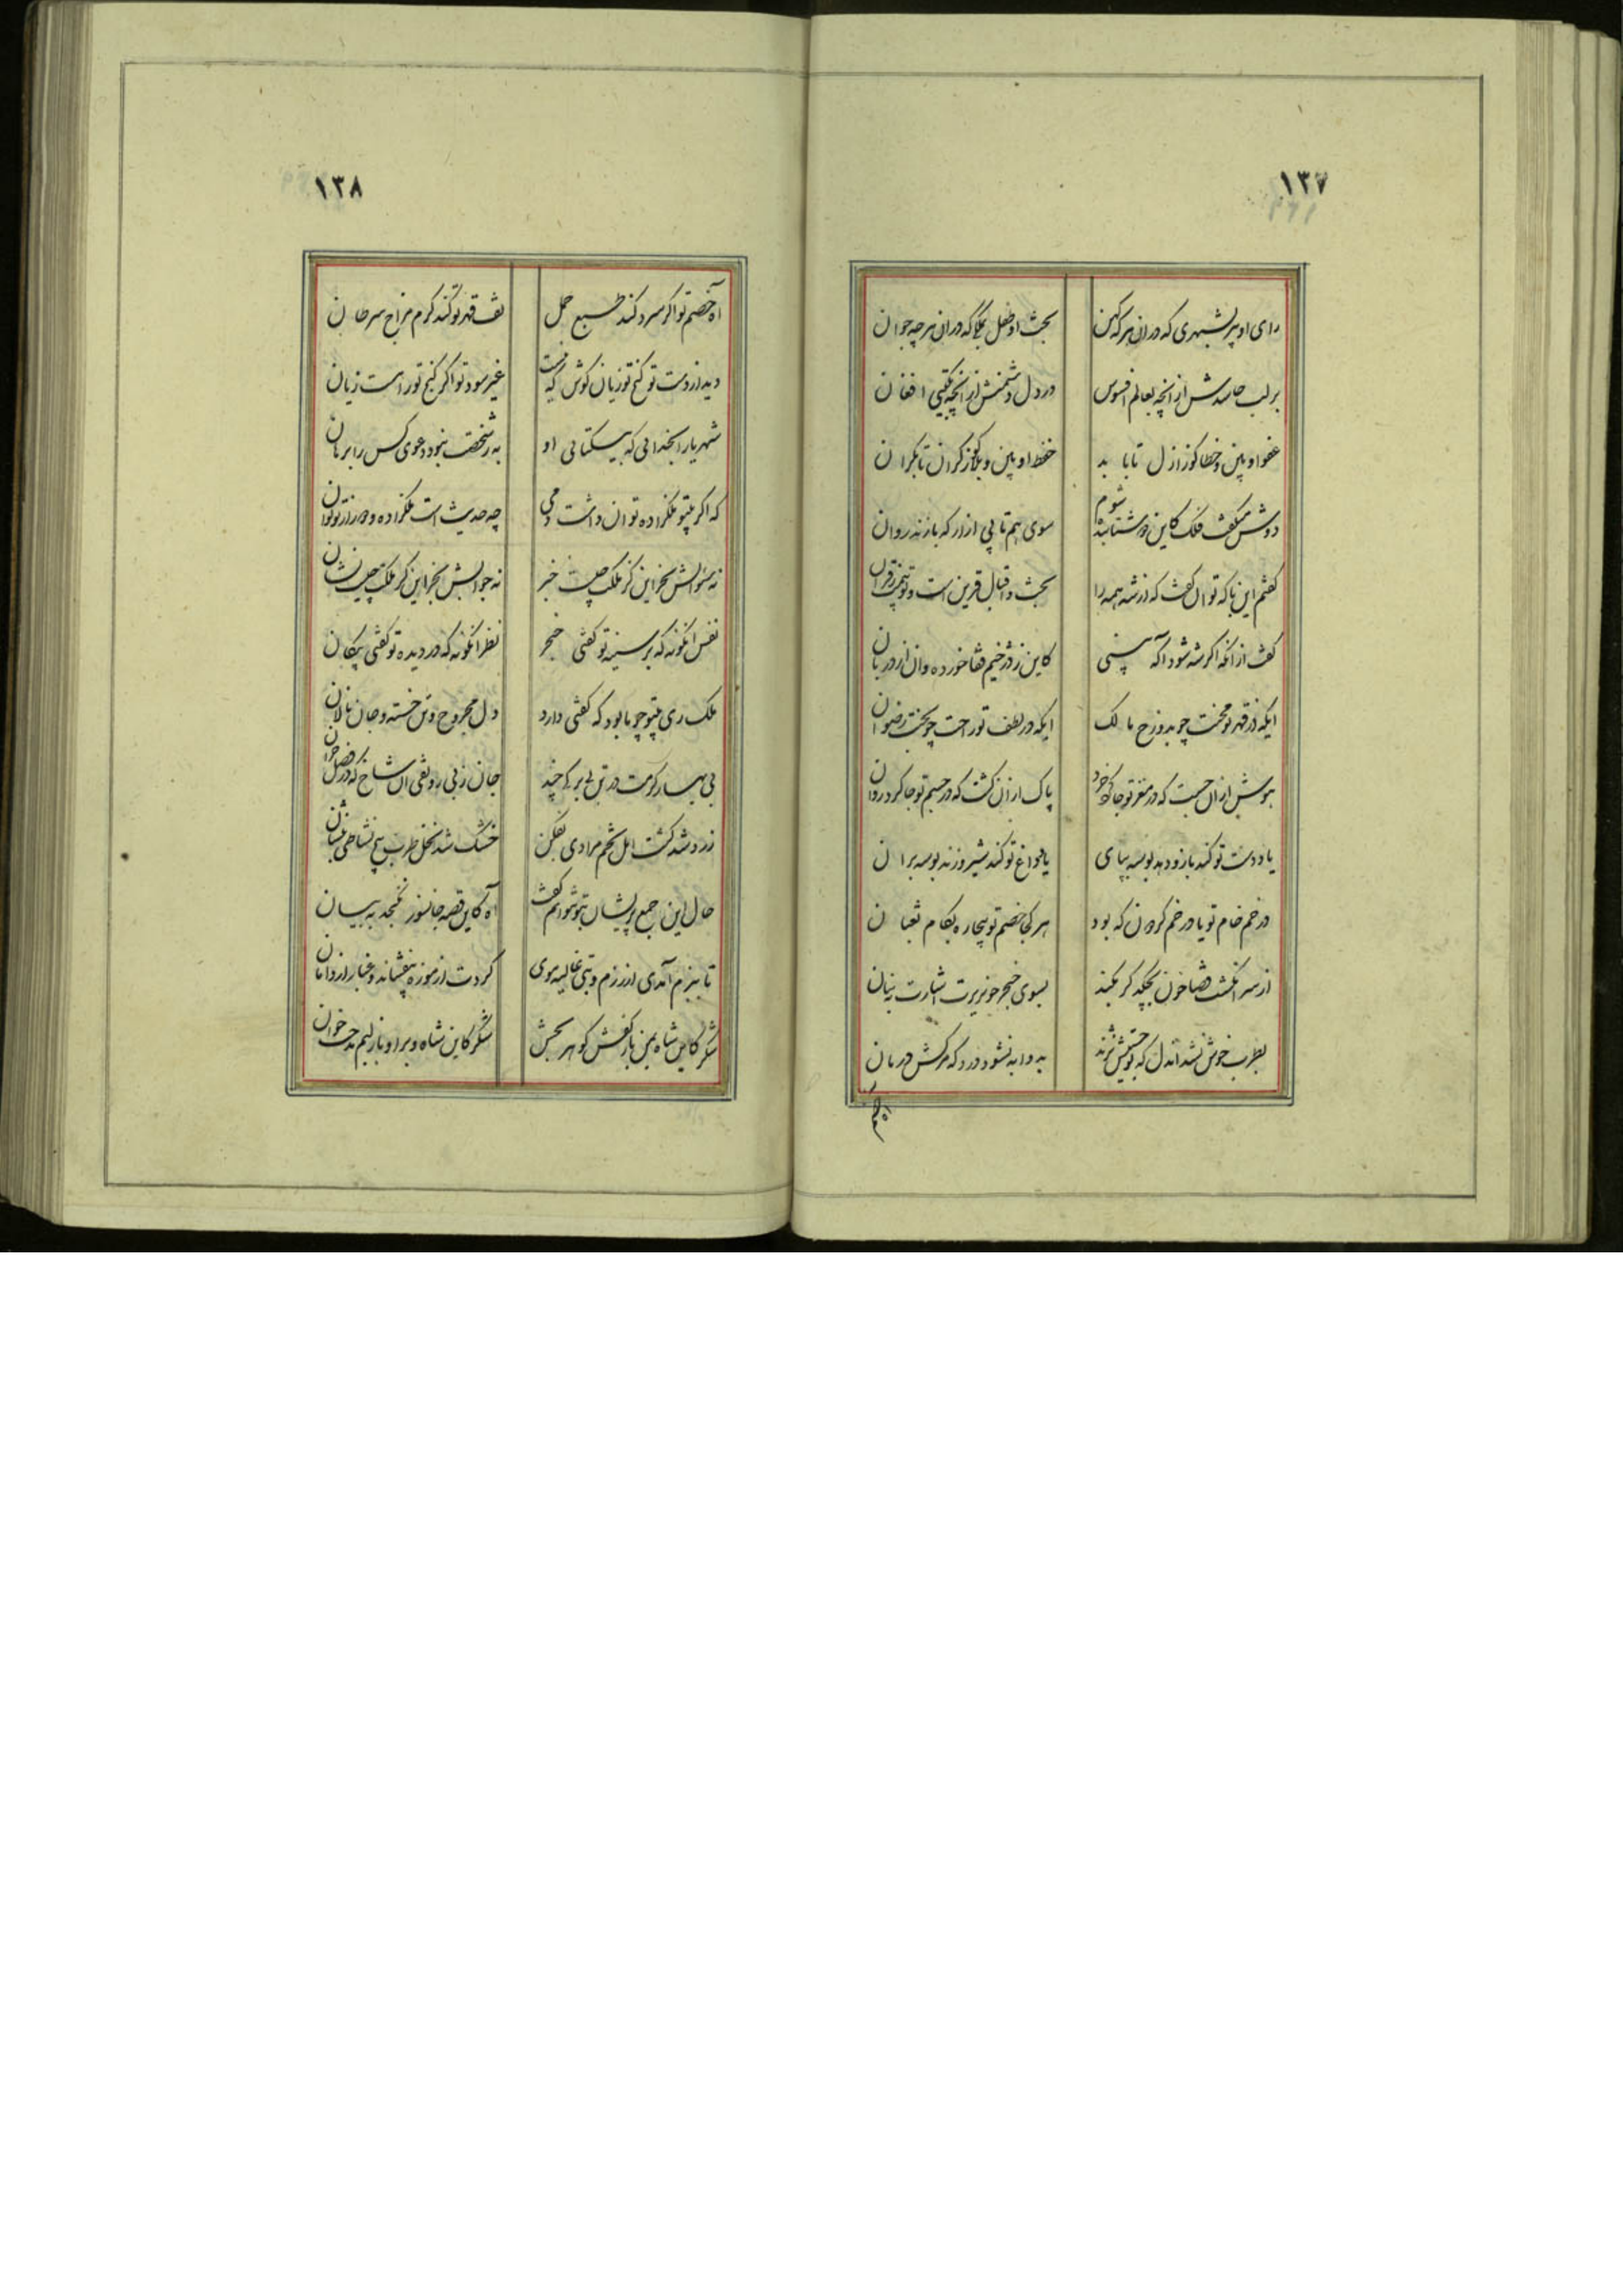 ۱۳۷
رای او پیر بشهری که در ان هر که کهن
بخت او طفل بملکی که در ان هر چه جوان
بر لب حاسدش از انچه بعالم افسوس
در دل دشمنش از انچه بگیتی افغان
عفو او بین و خطا کوز ازل تا بابد
حفظ او بین و بلا کز کران تا بکران
دوش میگفت فلک کاین دو شتابنده شوم
سوی هم تا پی ازار که بازند روان
گفتم این با که توان گفت که از شه همه را
بخت و اقبال قرین است و تو
گفت از انکه اگر شه شود اگه بینی
کاین ز دژخیم قفا خورده و ان از دربان
ایکه از قهر تو محنت چو بدوزخ مالک
ایکه در لطف تو راحت چو بجنت رضوان
هوش از ان جست که در مغز تو جا کرد خرد
پاک از ان گشت که در جسم تو جا کرد روان
یا ددت تو کند باز و دهد بوسه بپای
یا تو کند شیر و زند بوسه بران
در خم خام تو یا در خم گردون که بود
هر کجا خصم تو بیچاره بکام ثعبان
از سر انگشت قضا خون بچکد گر بکند
بسوی خنجر خونریزت اشارت بنان
بطرب خوش نشد اندل که تو خستیش نژند
به دوا به نشود درد که مرگش درمان
اه خصم
۱۳۸
اه خصم تو اگر سرد کند طبع حمل
تف قهر تو کند گرم مزاج سرطان
دید از دست تو گنج تو زیان گوش که گفت
غیر سود تو اگر گنج تو راست زیان
شهریارا بخدائی که بیکتائی او
به ز شخصت نبود دعوی کس را برهان
که اگر بیتو ملکزاده توان داشت دمی
چه حدیث است ملکزاده و صبر از تو توان
نه سئوالش بجز این کز ملکت چیست خبر
نه جوابش بجز این کز ملکت چیست نشان
نفس انگونه که بر سینه تو گفتی خنجر
نظر انگونه که در دیده تو گفتی پیکان
ملک ری بیتو چو ما بود که گفتی دارد
دل مجروح و تن خسته و جان نالان
بی بهار کرمت در تن بی برگی چند
جان ز بی رونقی ان شاخ که در فصل خزان
زرد شد کشت امل تخم مرادی بفکن
خشک شد نخل طرب بیخ نشاطی بنشان
حال این جمع پریشان بتو نتوانم گفت
آه کاین قصه جانسوز نگنجد به بیان
تا ببزم آمدی از رزم و بتی غالیه موی
گردت از موزه بیفشاند و غبار از دامان
شکر کاین شاه و من باز کفش گوهر بخش
شکر کاین شاه و بر او باز لبم مدحت خوان